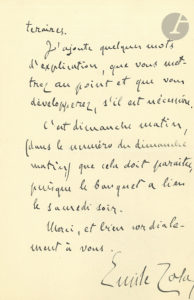 teraires.
J'ajoute quelques mots
d'explication, que vous met-
trez au point et que vous
développerez, s'il est nécessaire.
C'est dimanche matin,
(dans le numéro du dimanche
matin) que cela doit paraître,
puisque le banquet a lieu
le samedi soir.
Merci, et bien cordiale-
ment à vous.
Emile Zola